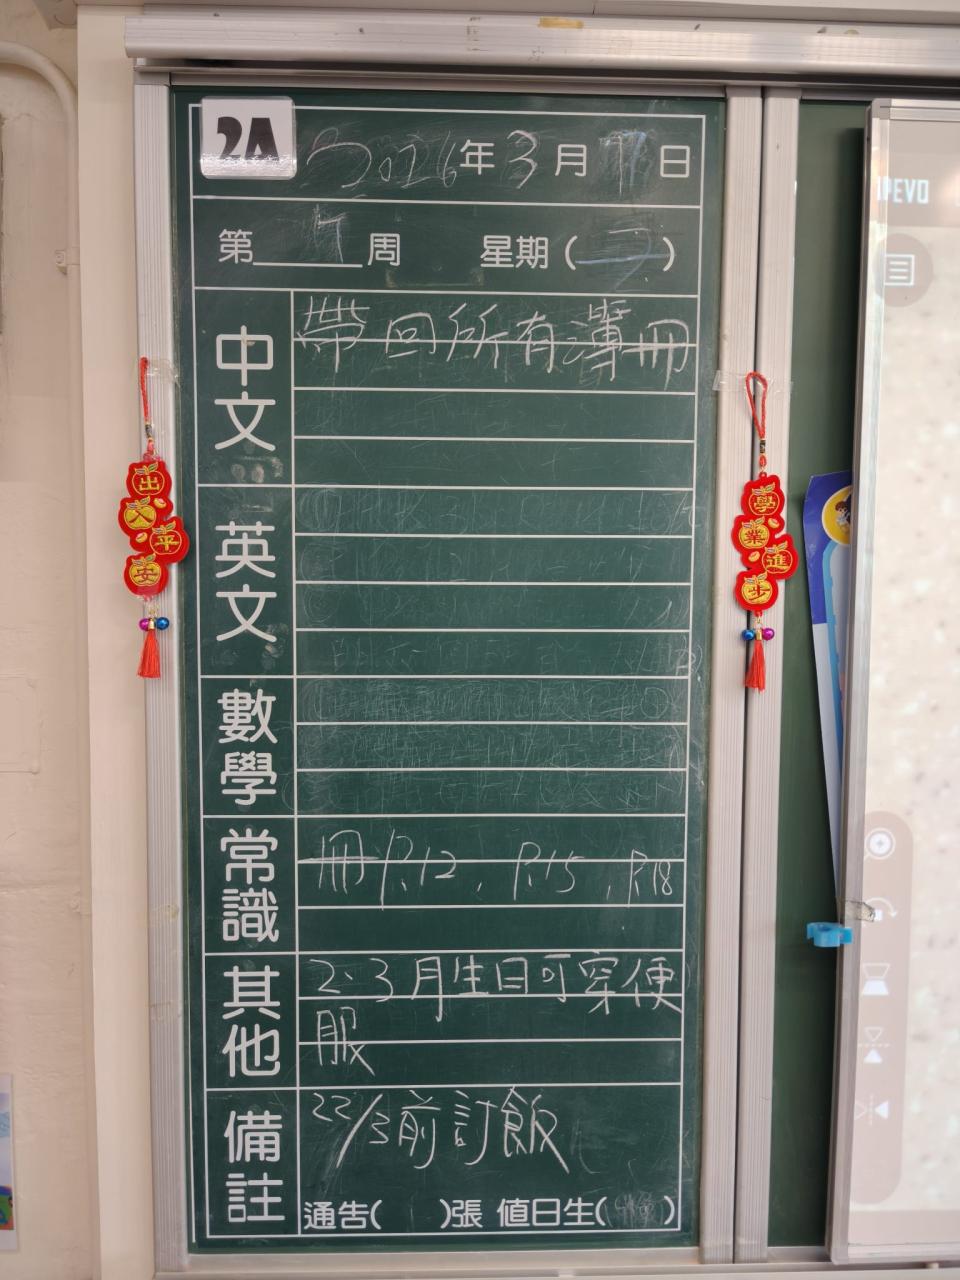 2A 2026年3月 日
第 周 星期( )
中文 帶回所有簿冊
英文
數學
常識 冊P.12、P.15、P.18
其他 2、3月生日可穿便
服
備註 22/3前訂飯
通告( )張 值日生( )
出入平安
學業進步
IPEVO